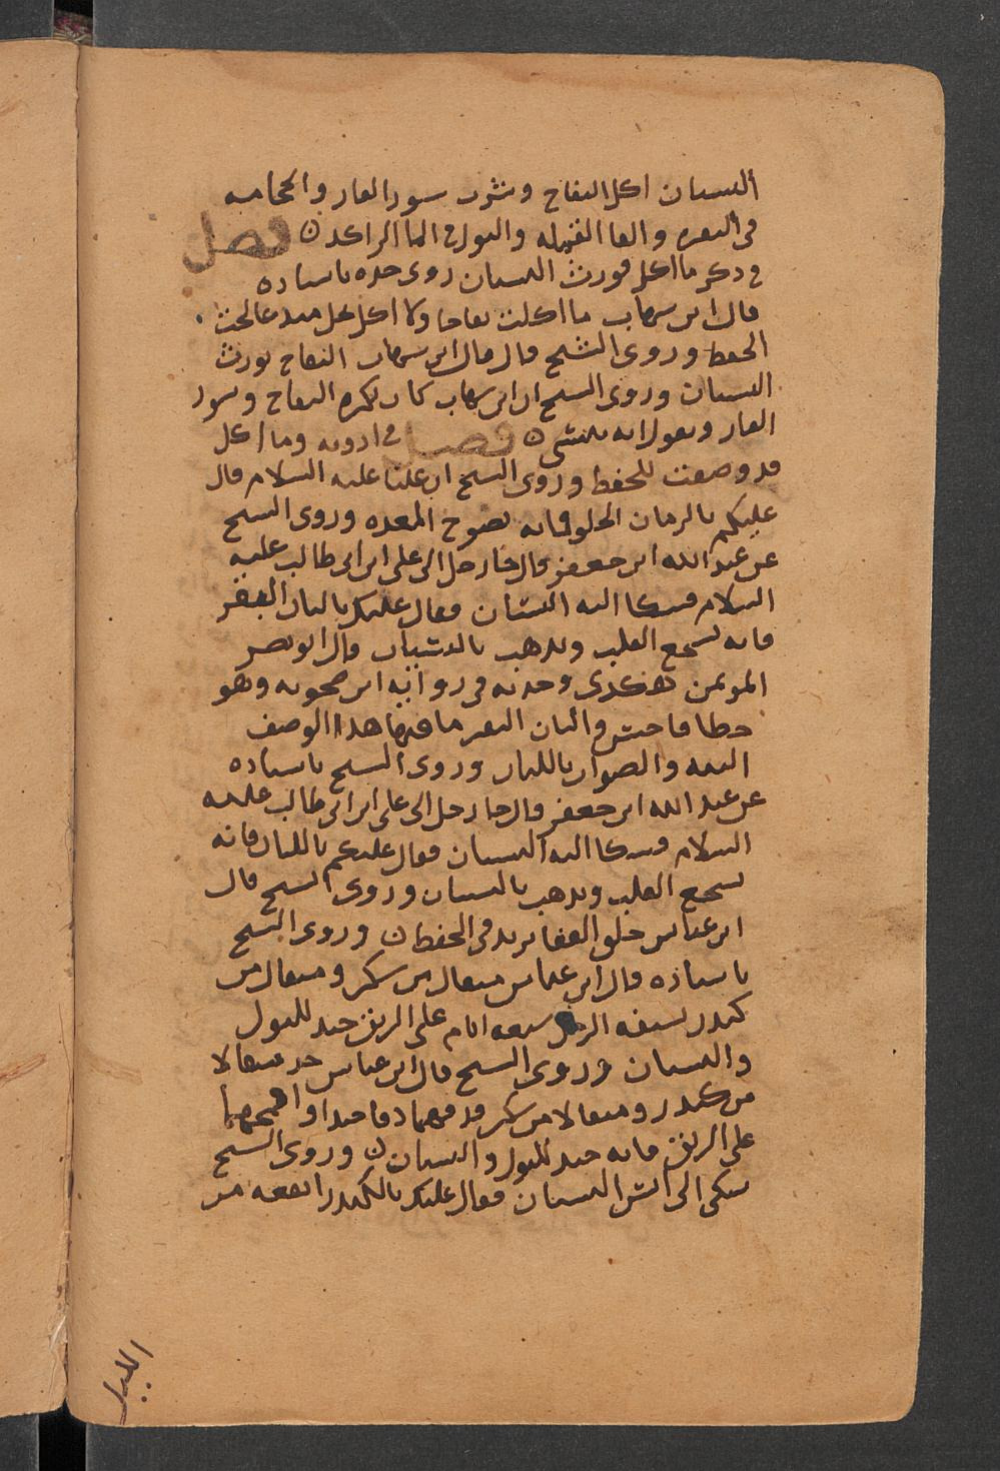 النسيان اكل التفاح وشرب سور الفار والحجامه
في النقره والقا القمله والبول في الما الراكد ن فصل
في ذكر ما اكل فورث النسيان روى حمزه باسناده
قال ابن شهاب ما اكلت تفاحا ولا اكل خل منذ عالجت
الحفظ وروى الشيخ قال قال ابن شهاب التفاح يورث
النسيان وروى الشيخ ان ابن شهاب كان يكره التفاح وسور
الفار ويقول انه ينسي ن فصل في ادويه وما اكل
قد وصفت للحفظ وروى الشيخ ان عليا عليه السلام قال
عليكم بالرمان الحلو فانه نضوح المعده وروى الشيخ
عن عبد الله ابن جعفر قال جا رجل الى علي ابن ابي طالب عليه
السلام فشكا اليه النسيان فقال عليك بالبان البقر
فانه يشجع القلب ويذهب بالنسيان قال ابو نصر
المؤتمن هكذى وجدته في روايه ابن صحويه وهو
خطا فاحش والبان البقر ما فيها هذا الوصف
البته والصواب باللبان وروى الشيخ باسناده
عن عبد الله ابن جعفر قال جا رجل الى علي ابن ابي طالب عليه
السلام فشكا اليه النسيان فقال عليكم باللبان فانه
يشجع القلب ويذهب بالنسيان وروى الشيخ قال
ابن عباس حلق القفا يزيد في الحفظ ن وروى الشيخ
باسناده قال ابن عباس مثقال من سكر ومثقال من
كندر يسفه الرجل سبعه ايام على الريق جيد للبول
والنسيان وروى الشيخ قال ابن عباس خذ مثقالا
من كندر ومثقالا من سكر فدقهما دقا جيدا واقمحهما
على الريق فانه جيد للبول والنسيان ن وروى الشيخ
شكى الى انس النسيان فقال عليك بالكندر انقعه من
الليل